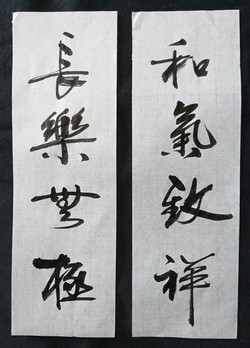 和氣致祥
長樂無極